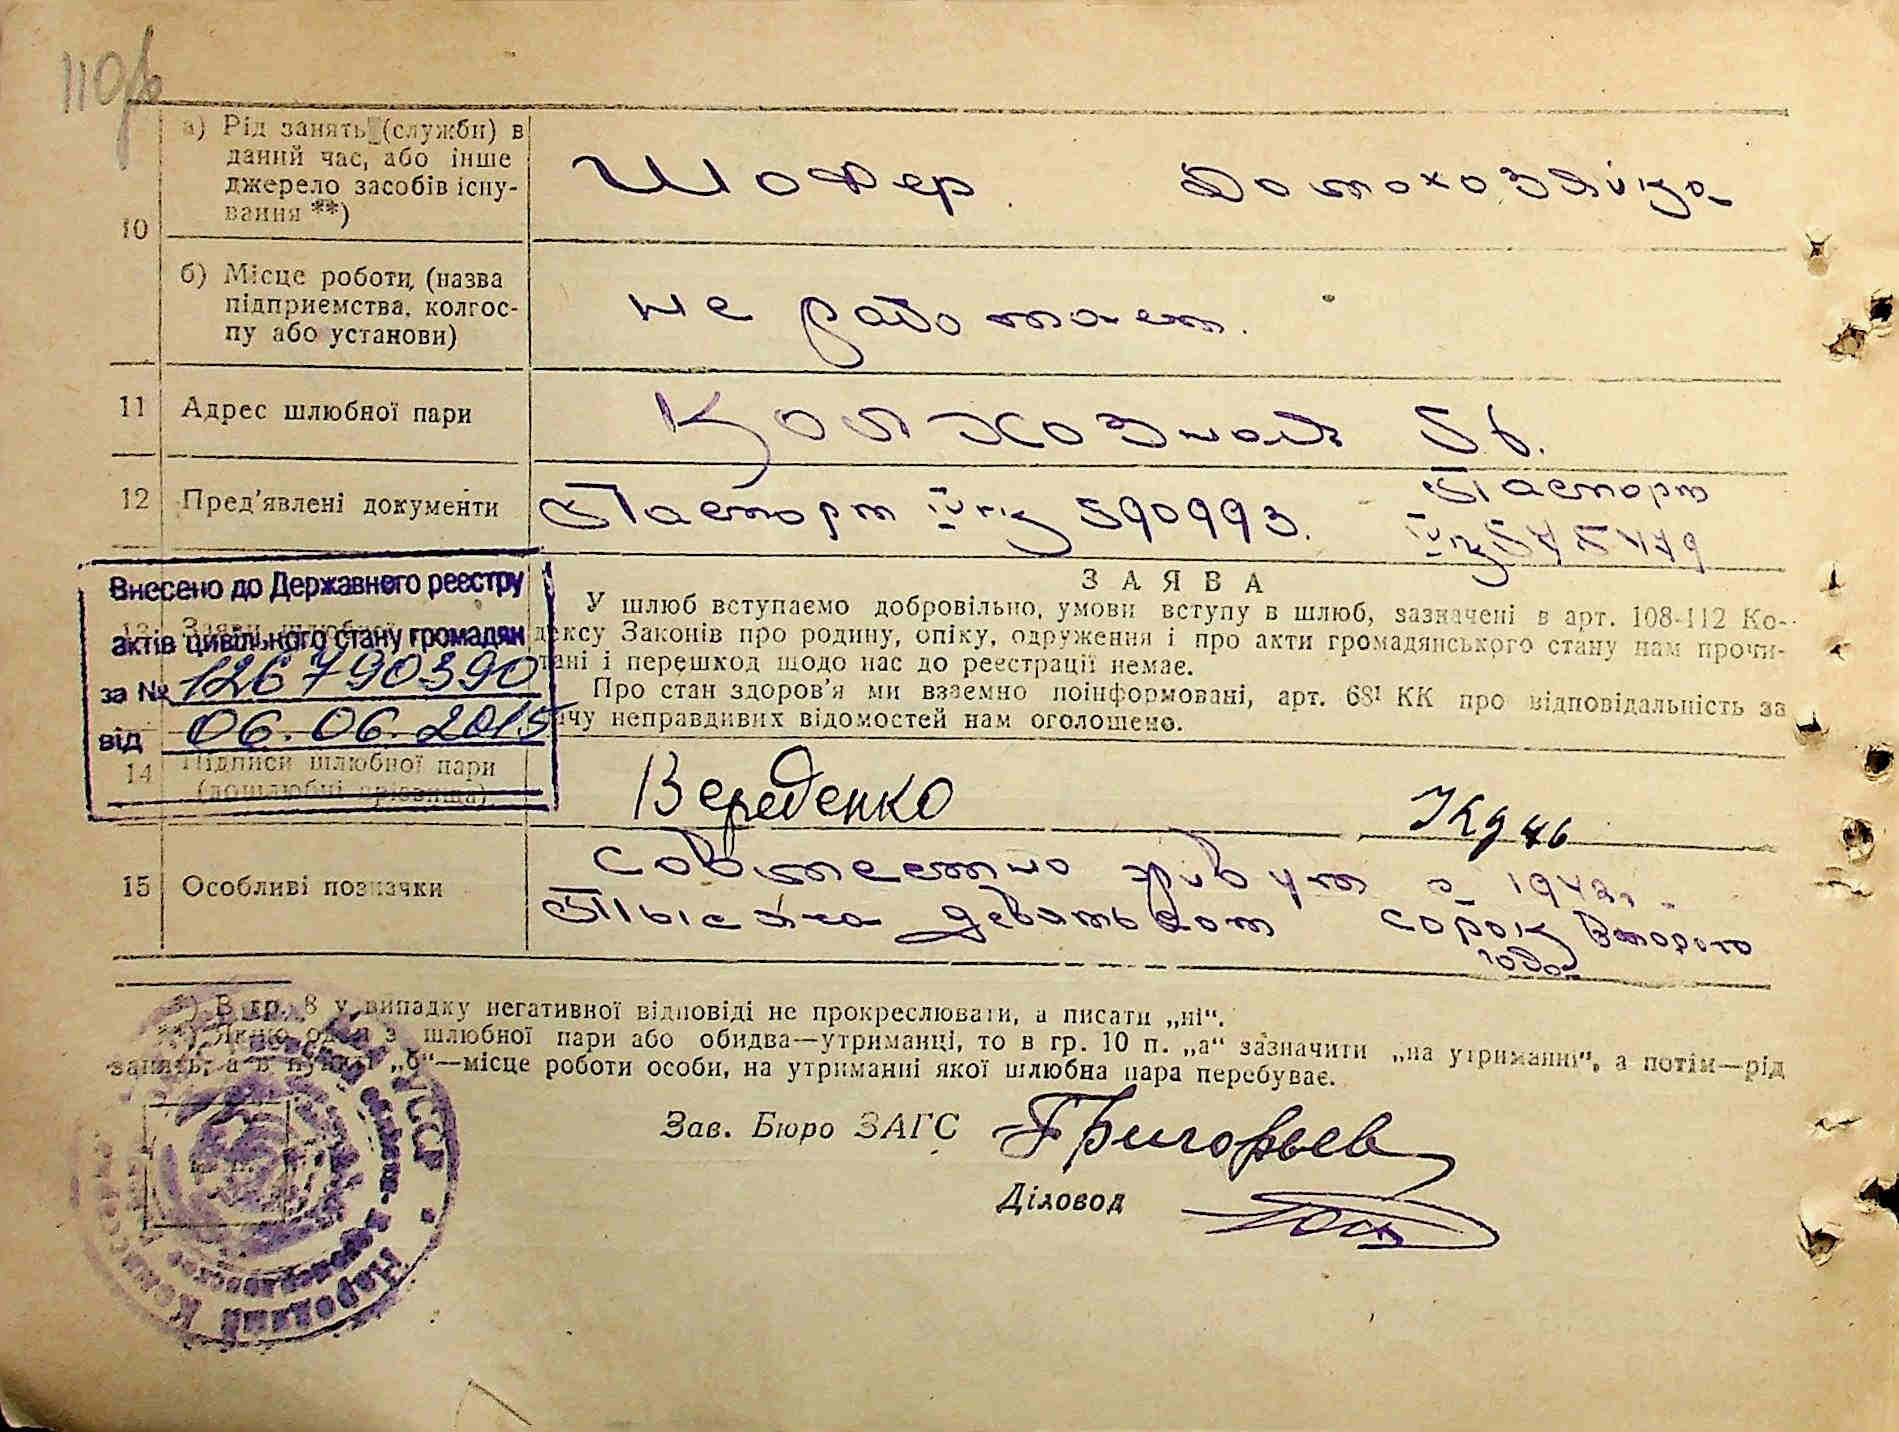 110
а) Рід занять (служби) в
даний час, або інше
джерело засобів існу-
вання **)
10
Шофер Домохозяйка
б) Місце роботи, (назва
підприємства, колгос-
пу або установи)
не работает.
11 Адрес шлюбної пари
Колхозная 56.
12 Пред'явлені документи
Паспорт 590993. Паспорт
Внесено до Державного реєстру
актів цивільного стану громадян
за № 126790390
від 06.06.2015
ЗАЯВА
У шлюб вступаємо добровільно, умови вступу в шлюб, зазначені в арт. 108-112 Ко-
дексу Законів про родину, опіку, одруження і про акти громадянського стану нам прочи-
тані і перешкод щодо нас до реєстрації немає.
Про стан здоров'я ми взаємно поінформовані, арт. 68¹ КК про відповідальність за
дачу неправдивих відомостей нам оголошено.
14 Підписи шлюбної пари
(дошлюбні прізвища)
Вереденко
15 Особливі позначки
Совместно живут с 1942г.
Тысяча девятьсот сорок второго
года
*) В гр. 8 у випадку негативної відповіді не прокреслювати, а писати „ні“.
**) Якщо один з шлюбної пари або обидва—утриманці, то в гр. 10 п. „а“ зазначити „на утриманні“, а потім—рід
занять, а в пункті „б“—місце роботи особи, на утриманні якої шлюбна пара перебуває.
Зав. Бюро ЗАГС Григорьев
Діловод
УССР
Народний